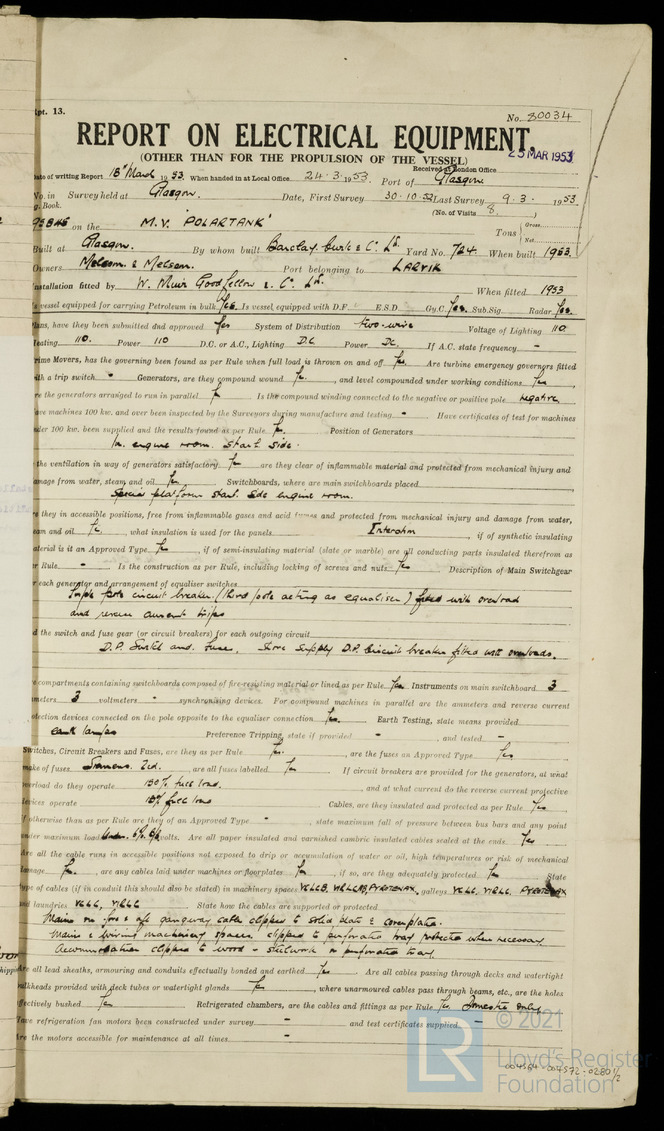 pt. 13.
No. 80034
REPORT ON ELECTRICAL EQUIPMENT.
25 MAR 1953
(OTHER THAN FOR THE PROPULSION OF THE VESSEL)
Received at London Office
Date of writing Report 18th March 1953. When handed in at Local Office 24.3.1953. Port of Glasgow.
No. in Survey held at Glasgow. Date, First Survey 30.10.52 Last Survey 9.3.1953
g. Book. (No. of Visits 8.)
95846 on the M.V. 'POLARTANK' Tons Gross
Net
Built at Glasgow. By whom built Barclay, Curle & Co. Ld. Yard No. 724. When built 1953.
Owners Melsom & Melsom. Port belonging to LARVIK
Installation fitted by W. Muir Goodfellow & Co. Ld. When fitted 1953
s vessel equipped for carrying Petroleum in bulk Yes. Is vessel equipped with D.F. E.S.D. Gy.C. Yes. Sub.Sig. Radar Yes.
lans, have they been submitted and approved Yes System of Distribution two-wire Voltage of Lighting 110.
eating 110. Power 110 D.C. or A.C., Lighting D.C. Power D.C. If A.C. state frequency -
rime Movers, has the governing been found as per Rule when full load is thrown on and off Yes. Are turbine emergency governors fitted
ith a trip switch - Generators, are they compound wound Yes, and level compounded under working conditions Yes,
re the generators arranged to run in parallel Yes Is the compound winding connected to the negative or positive pole negative
ave machines 100 kw. and over been inspected by the Surveyors during manufacture and testing - Have certificates of test for machines
nder 100 kw. been supplied and the results found as per Rule Yes. Position of Generators
In engine room. Starb side.
the ventilation in way of generators satisfactory Yes are they clear of inflammable material and protected from mechanical injury and
amage from water, steam and oil Yes Switchboards, where are main switchboards placed
Special platform starb. side engine room.
re they in accessible positions, free from inflammable gases and acid fumes and protected from mechanical injury and damage from water,
eam and oil Yes, what insulation is used for the panels , if of synthetic insulating
aterial is it an Approved Type Yes, if of semi-insulating material (slate or marble) are all conducting parts insulated therefrom as
er Rule - Is the construction as per Rule, including locking of screws and nuts Yes Description of Main Switchgear
r each generator and arrangement of equaliser switches
Triple pole circuit breaker (third pole acting as equaliser) fitted with overload
and reverse current trips
d the switch and fuse gear (or circuit breakers) for each outgoing circuit
D.P. Switch and. Fuse. Shore Supply D.P. Circuit breaker fitted with overloads.
e compartments containing switchboards composed of fire-resisting material or lined as per Rule Yes Instruments on main switchboard 3
meters 3 voltmeters - synchronising devices. For compound machines in parallel are the ammeters and reverse current
otection devices connected on the pole opposite to the equaliser connection Yes. Earth Testing, state means provided
earth lamps Preference Tripping, state if provided - , and tested -
Switches, Circuit Breakers and Fuses, are they as per Rule Yes. , are the fuses an Approved Type Yes
make of fuses Siemens. Zed. , are all fuses labelled Yes If circuit breakers are provided for the generators, at what
verload do they operate 150% full load. , and at what current do the reverse current protective
evices operate 15% full load Cables, are they insulated and protected as per Rule Yes
f otherwise than as per Rule are they of an Approved Type - , state maximum fall of pressure between bus bars and any point
nder maximum load volts. Are all paper insulated and varnished cambric insulated cables sealed at the ends Yes
Are all the cable runs in accessible positions not exposed to drip or accumulation of water or oil, high temperatures or risk of mechanical
damage Yes. , are any cables laid under machines or floorplates Yes, if so, are they adequately protected Yes State
type of cables (if in conduit this should also be stated) in machinery spaces VCLCB, VRLCAB, PYROTENAX , galleys VCLC, VRLC, PYROTENAX
and laundries VCLC, VRLC State how the cables are supported or protected
Mains on fore & aft gangway cable clipped to solid plate & coverplates.
Mains & wiring machinery spaces clipped to perforated tray protected when necessary
Accommodation clipped to wood - steelwork or perforated tray.
re all lead sheaths, armouring and conduits effectually bonded and earthed Yes Are all cables passing through decks and watertight
ulkheads provided with deck tubes or watertight glands Yes , where unarmoured cables pass through beams, etc., are the holes
ffectively bushed Yes Refrigerated chambers, are the cables and fittings as per Rule Yes Domestic only
ave refrigeration fan motors been constructed under survey - and test certificates supplied -
re the motors accessible for maintenance at all times -
© 2021
LR
Lloyd's Register
Foundation
004564-004572-0280 1/2